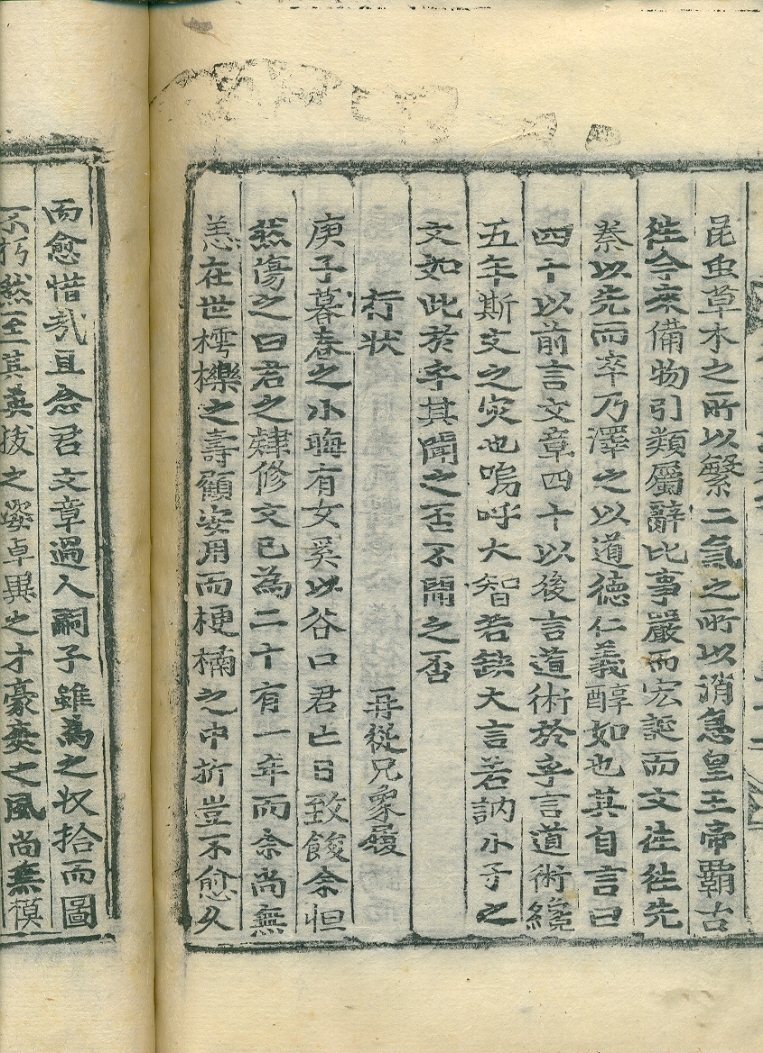 昆虫草木之所以繁二氣之所以消息皇王帝霸古
徃今來備物引類屬辭比事嚴而宏誕而文徃徃先
秦以先而卒乃澤之以道德仁義醇如也其自言曰
四十以前言文章四十以後言道術於乎言道術纔
五年斯文之灾也嗚呼大智若缺大言若訥小子之
文如此於乎其聞之否不聞之否
行状
再從兄象履
庚子暮春之小晦有女奚以谷口君亡日致餕余怛
然傷之曰君之肄修文已為二十有一年而余尚無
恙在世樗櫟之壽顧妄用而梗楠之中折豈不愈久
而愈惜哉且念君文章過人嗣子雖為之收拾而圖
不朽然至其英拔之姿卓異之才豪爽之風尚無模